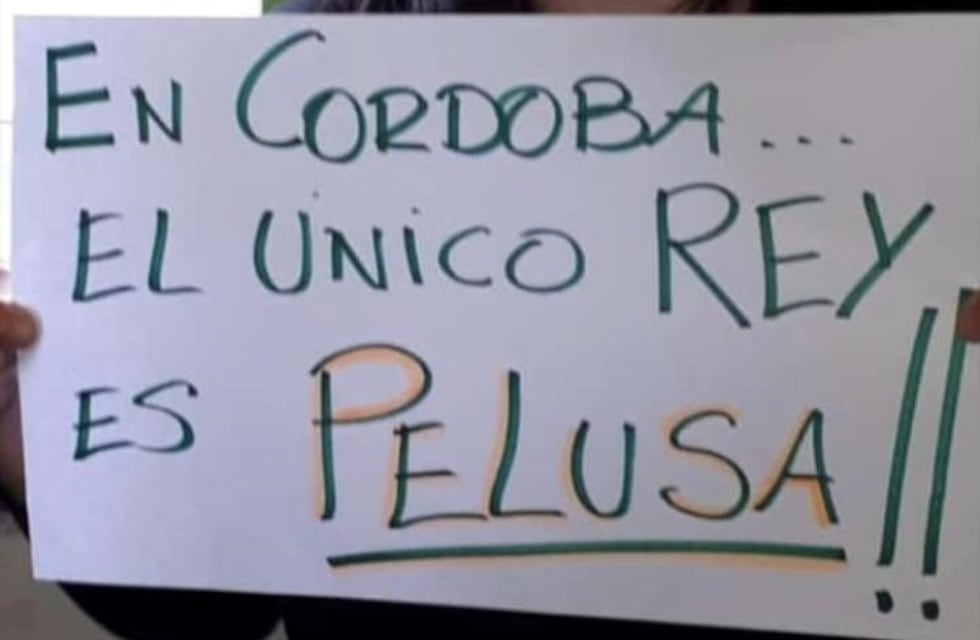 EN CORDOBA...
EL UNICO REY
ES PELUSA!!